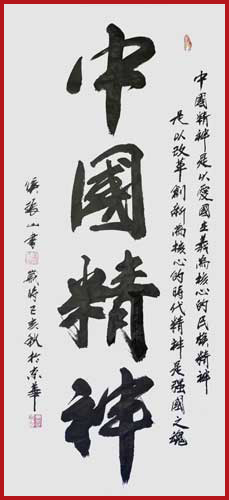 中國精神
中國精神是以愛國主義為核心的民族精神
是以改革創新為核心的時代精神是强國之魂
張山書
歲時己亥秋於京華